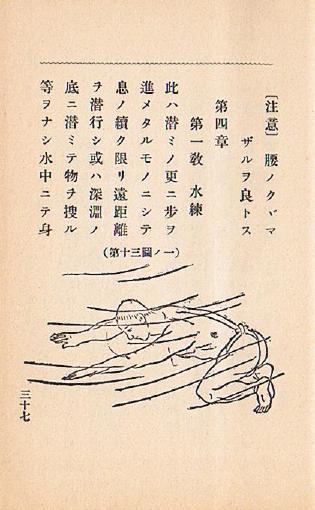 〔注意〕 腰ノクヾマ
ザルヲ良トス
第四章
第一教 水練
此ハ潜ミノ更ニ歩ヲ
進メタルモノニシテ
息ノ續ク限リ遠距離
ヲ潜行シ或ハ深淵ノ
底ニ潜ミテ物ヲ捜ル
等ヲナシ水中ニテ身
(一ノ圖三十第)
三十七